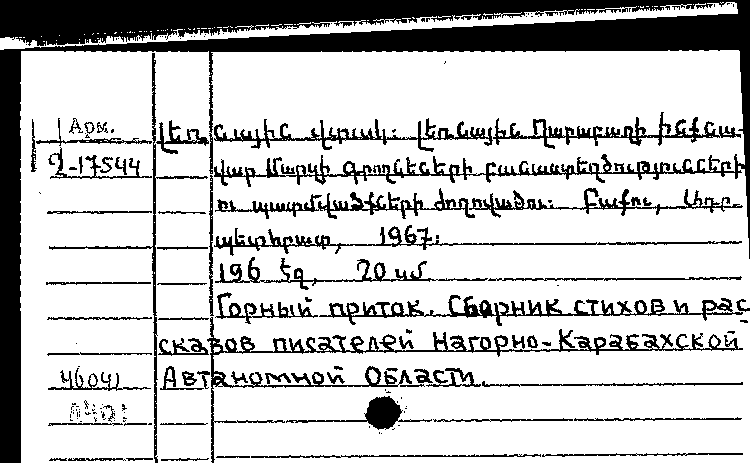 Арм.
Լեռնային վտակ: Լեռնային Ղարաբաղի ինքնա-
2-17544
վար Մարզի գրողների բանաստեղծությունների
ու պատմվածքների ժողովածու: Բաքու, Ադր-
պետհրատ, 1967:
196 էջ, 20 սմ
Горный приток. Сборник стихов и рас
сказов писателей Нагорно-Карабахской
46041
Автаномной Области.